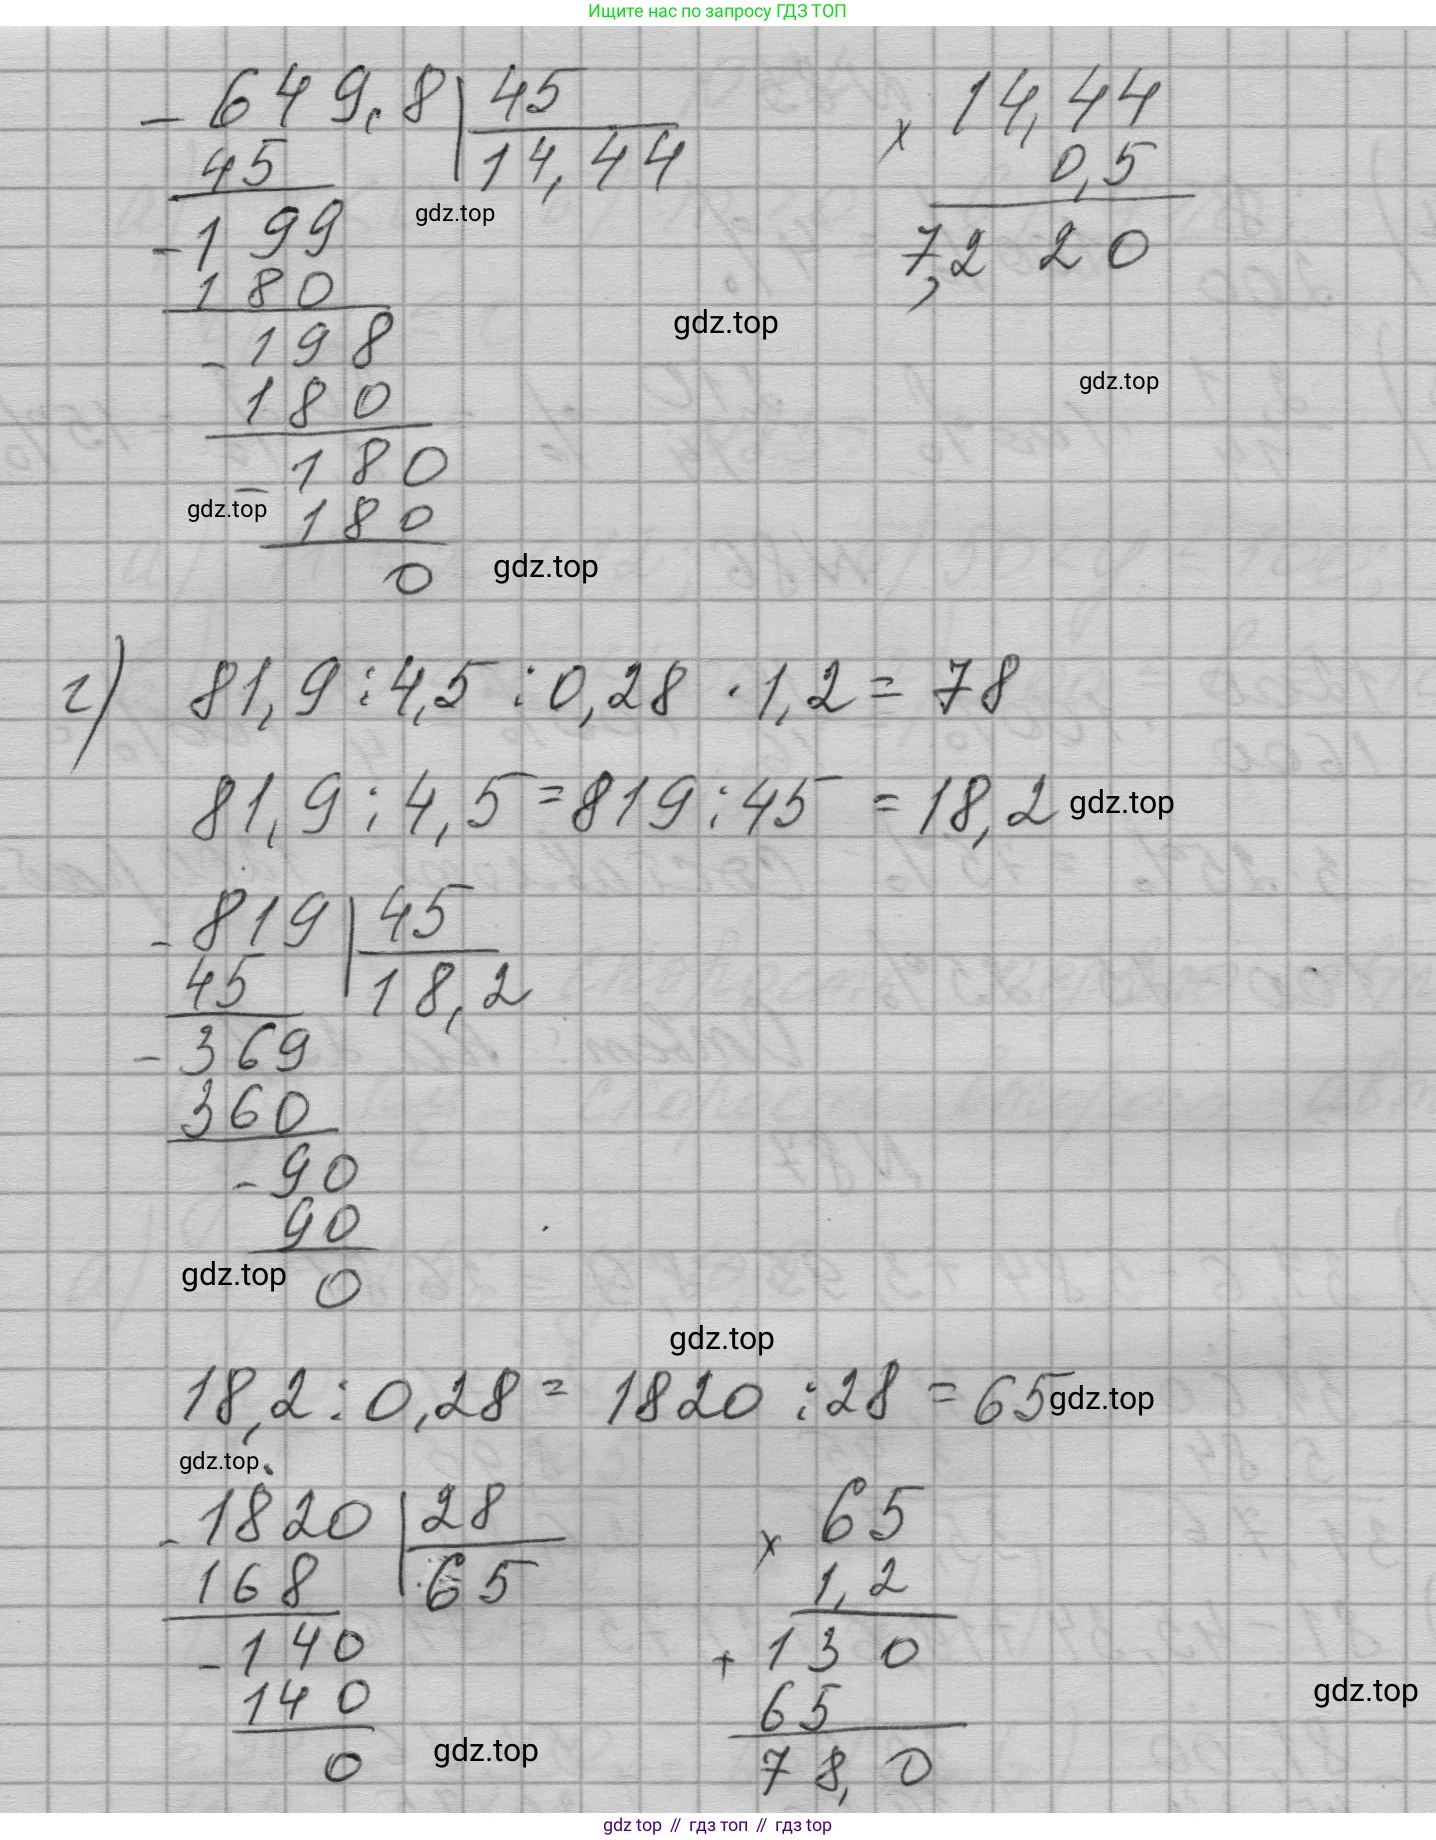 Ищите нас по запросу ГДЗ ТОП
- 649,8 | 45
45 14,44
gdz.top
- 199
180
- 198
180
- 180
gdz.top
180
0
gdz.top
× 14,44
0,5
7,2 2 0
gdz.top
gdz.top
г) 81,9 : 4,5 : 0,28 · 1,2 = 78
81,9 : 4,5 = 819 : 45 = 18,2 gdz.top
- 819 | 45
45 18,2
- 369
360
- 90
90
gdz.top
0
gdz.top
18,2 : 0,28 = 1820 : 28 = 65 gdz.top
gdz.top
- 1820 | 28
168 65
- 140
140
0
gdz.top
× 65
1,2
+ 130
65
78,0
gdz.top
gdz top // гдз топ // гдз top